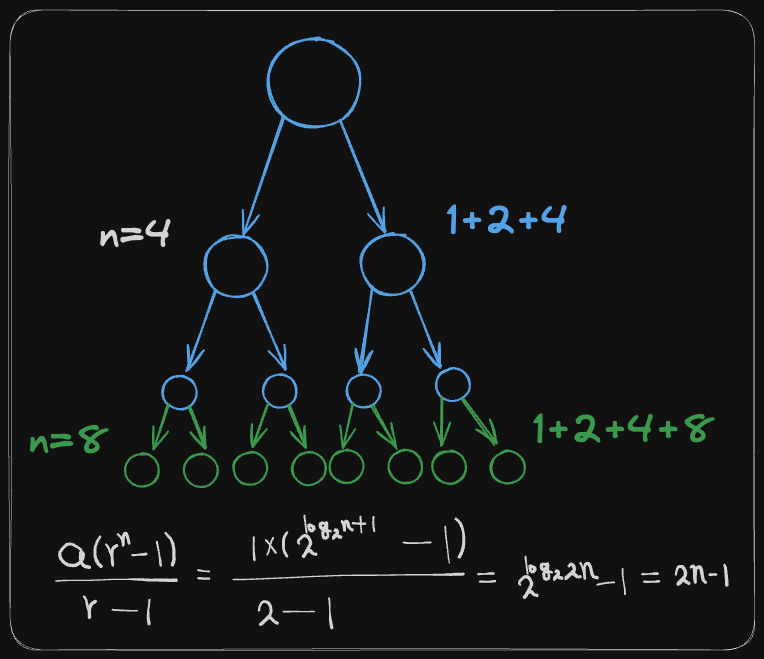 1+2+4
n=4
n=8
1+2+4+8
a(rⁿ-1)/(r-1) = 1×(2^(log₂n+1) - 1)/(2-1) = 2^(log₂2n) - 1 = 2n-1